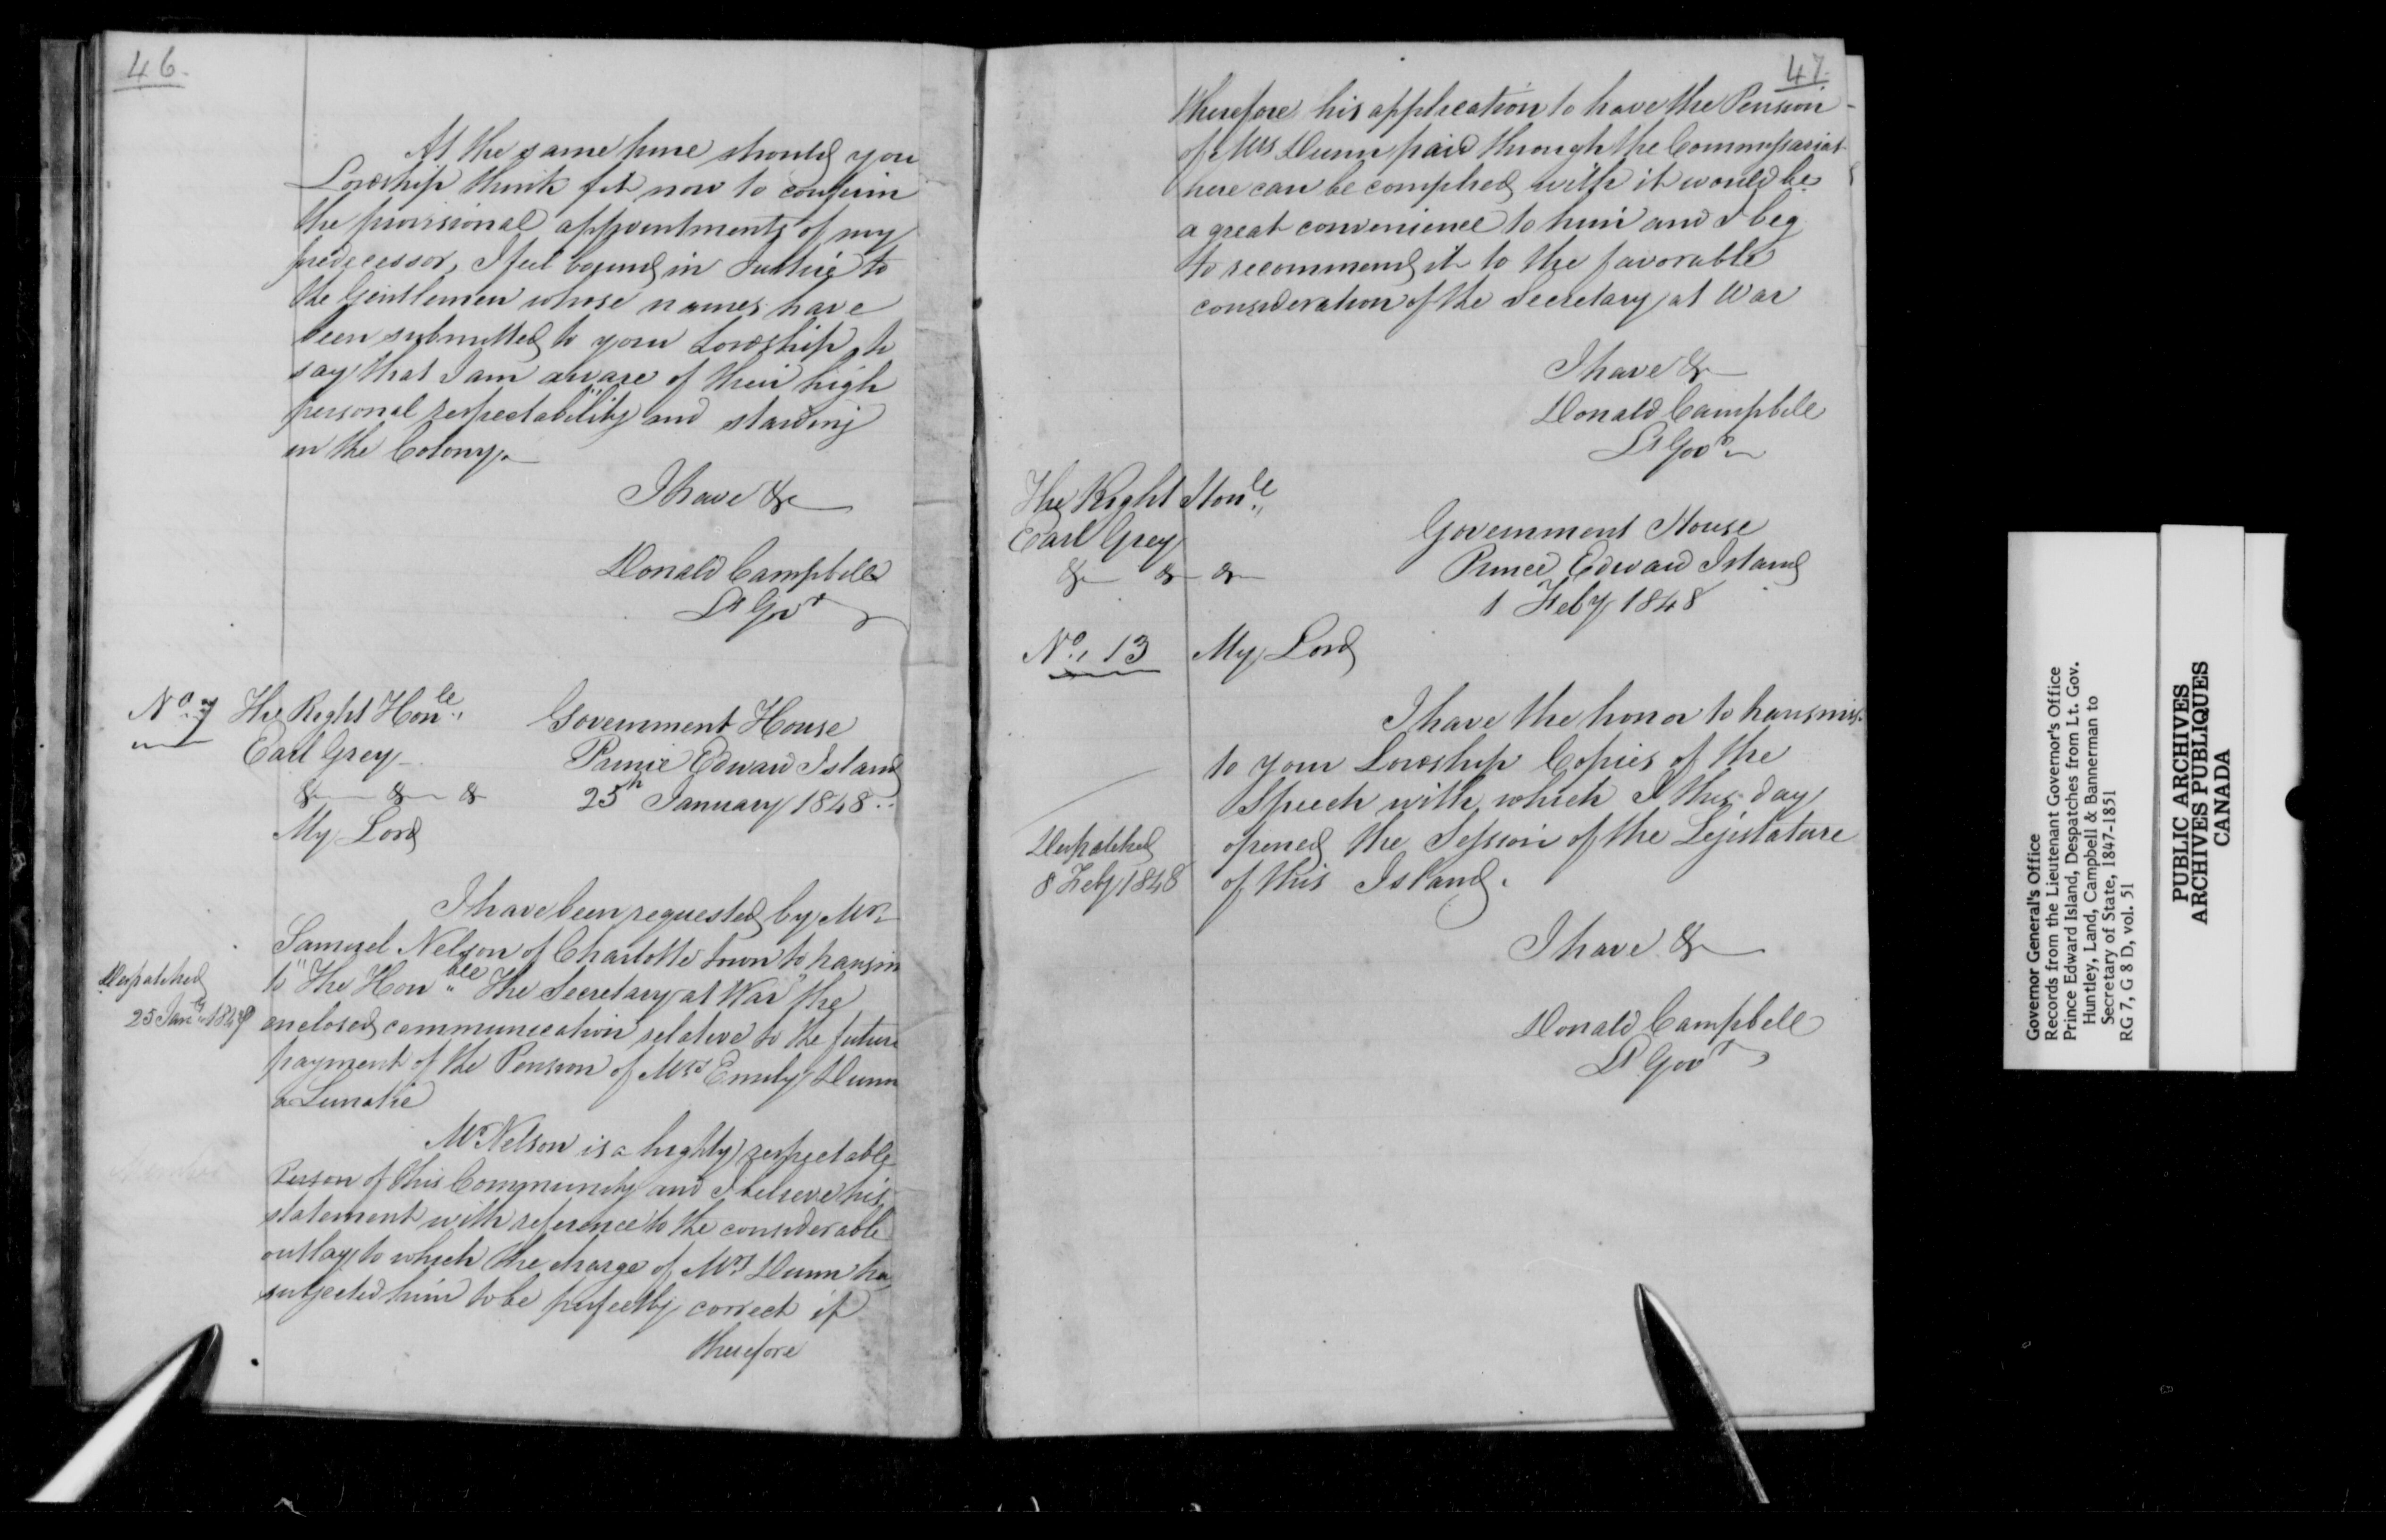 46.
At the same time should you
Lordship think fit now to confirm
the provisional appointments of my
predecessor, I feel bound in Justice to
the Gentlemen whose names have
been submitted to your Lordship to
say that I am aware of their high
personal respectability and standing
in the Colony.
I have &c
Donald Campbell
Lt Govr
No. 7 The Right Honble
Earl Grey
&c &c &c
Government House
Prince Edward Island
25th January 1848
My Lord
I have been requested by Mr
Samuel Nelson of Charlotte Town to transm
to "The Honble The Secretary at War" the
enclosed communication relative to the future
payment of the Pension of Mrs Emily Dunn
a Lunatic
Despatched
25 Jany 1848
Mr Nelson is a highly respectable
Person of this Community and I believe his
statement with reference to the considerable
outlay to which the charge of Mrs Dunn has
subjected him to be perfectly correct if
therefore
47.
therefore his application to have the Pension
of Mrs Dunn paid through the Commissariat
here can be complied with it would be
a great convenience to him and I beg
to recommend it to the favorable
consideration of the Secretary at War
I have &c
Donald Campbell
Lt Govr
The Right Honble
Earl Grey
&c &c &c
Government House
Prince Edward Island
1 Feby 1848
No. 13 My Lord
I have the honor to transmit
to your Lordship Copies of the
Speech with which I this day
opened the Session of the Legislature
of this Island.
Despatched
8 Feby 1848
I have &c
Donald Campbell
Lt Govr
Governor General's Office
Records from the Lieutenant Governor's Office
Prince Edward Island, Despatches from Lt. Gov.
Huntley, Land, Campbell & Bannerman to
Secretary of State, 1847-1851
RG 7, G 8 D, vol. 51
PUBLIC ARCHIVES
ARCHIVES PUBLIQUES
CANADA